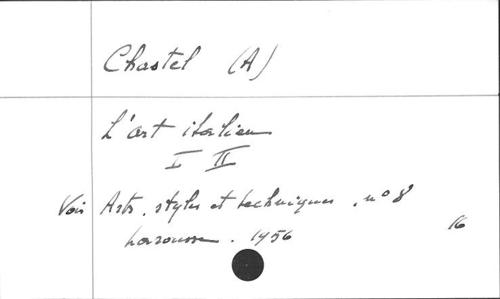 Chastel (A)
L'art italien
I II
Voir Arts, styles et techniques, n° 8
Larousse. 1956
16